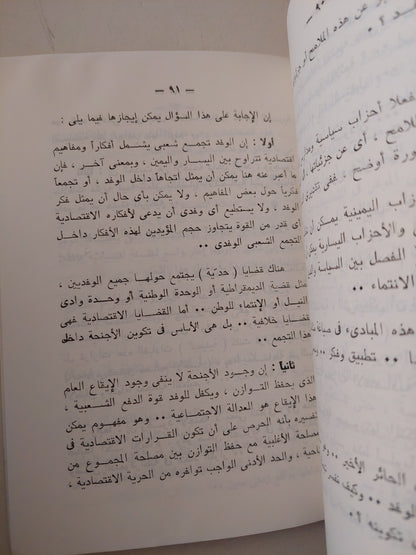 — ٩١ —
إن الإجابة على هذا السؤال يمكن إيجازها فيما يلى :
أولا : إن الوفد تجمع شعبى يشمل أفكاراً ومفاهيم
اقتصادية تتراوح بين اليسار واليمين ، وبمعنى آخر ، فإن
ما أعبر عنه هنا يمكن أن يمثل اتجاهاً داخل الوفد ، أو تجمعاً
فكرياً حول بعض المفاهيم ، ولا يمكن بأى حال أن يمثل فكر
الوفد . ولا يستطيع أى وفدى أن يدعى لأفكاره الاقتصادية
أى قدر من القوة يتجاوز حجم المؤيدين لهذه الأفكار داخل
التجمع الشعبى الوفدى ..
هناك قضايا ( حدية ) يجتمع حولها جميع الوفديين ،
مثل قضية الديمقراطية أو الوحدة الوطنية أو وحدة وادى
النيل أو الإنتماء للوطن .. أما القضايا الاقتصادية فهى
قضايا خلافية .. بل هى الأساس فى تكوين الأجنحة داخل
هذا التجمع ..
ثانياً : إن وجود الأجنحة لا ينفى وجود الإيقاع العام
الذى يحفظ التوازن ، ويكفل للوفد قوة الدفع الشعبية ،
هذا الإيقاع هو العدالة الاجتماعية .. وهو مفهوم يمكن
تفسيره بأنه الحرص على أن تكون القرارات الاقتصادية فى
مصلحة الأغلبية مع حفظ التوازن بين مصلحة المجموع من
ناحية ، والحد الأدنى الواجب توافره من الحرية الاقتصادية ،
— ٩٠
عن هذه الملامح أو
فعلا أحزاب سياسية
، أى عن جزئياتها
صورة أوضح ،
اليمينية يمكن أن
والأحزاب اليسارية يمكن
الفصل بين السياسة
الانتماء ..
هذه المبادىء فى
.. تطبيق وفكر ..
الحائر الأخير ..
الوفد .. وكيف
تكوينه ؟ .